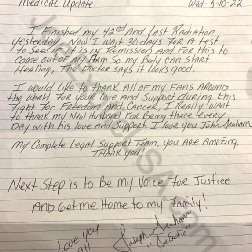 Medical Update Wed 5-10-22
I finished my 42nd and last Radiation
Yesterday. Now I wait 30 days for a test
to see if it is in Remission and for this to
come out of my skin so my body can start
Healing, The Doctor says it looks good.
I would like to thank all of my fans around
the world for your love and support during this
Fight for Freedom and Cancer. I really want
to thank my new Husband for being there every
Day with his love and support. I love you John Graham
My complete legal support team, you are amazing
Thank you!
Next Step is to Be my Voice for Justice
And Get me Home to my family!
Love you
all